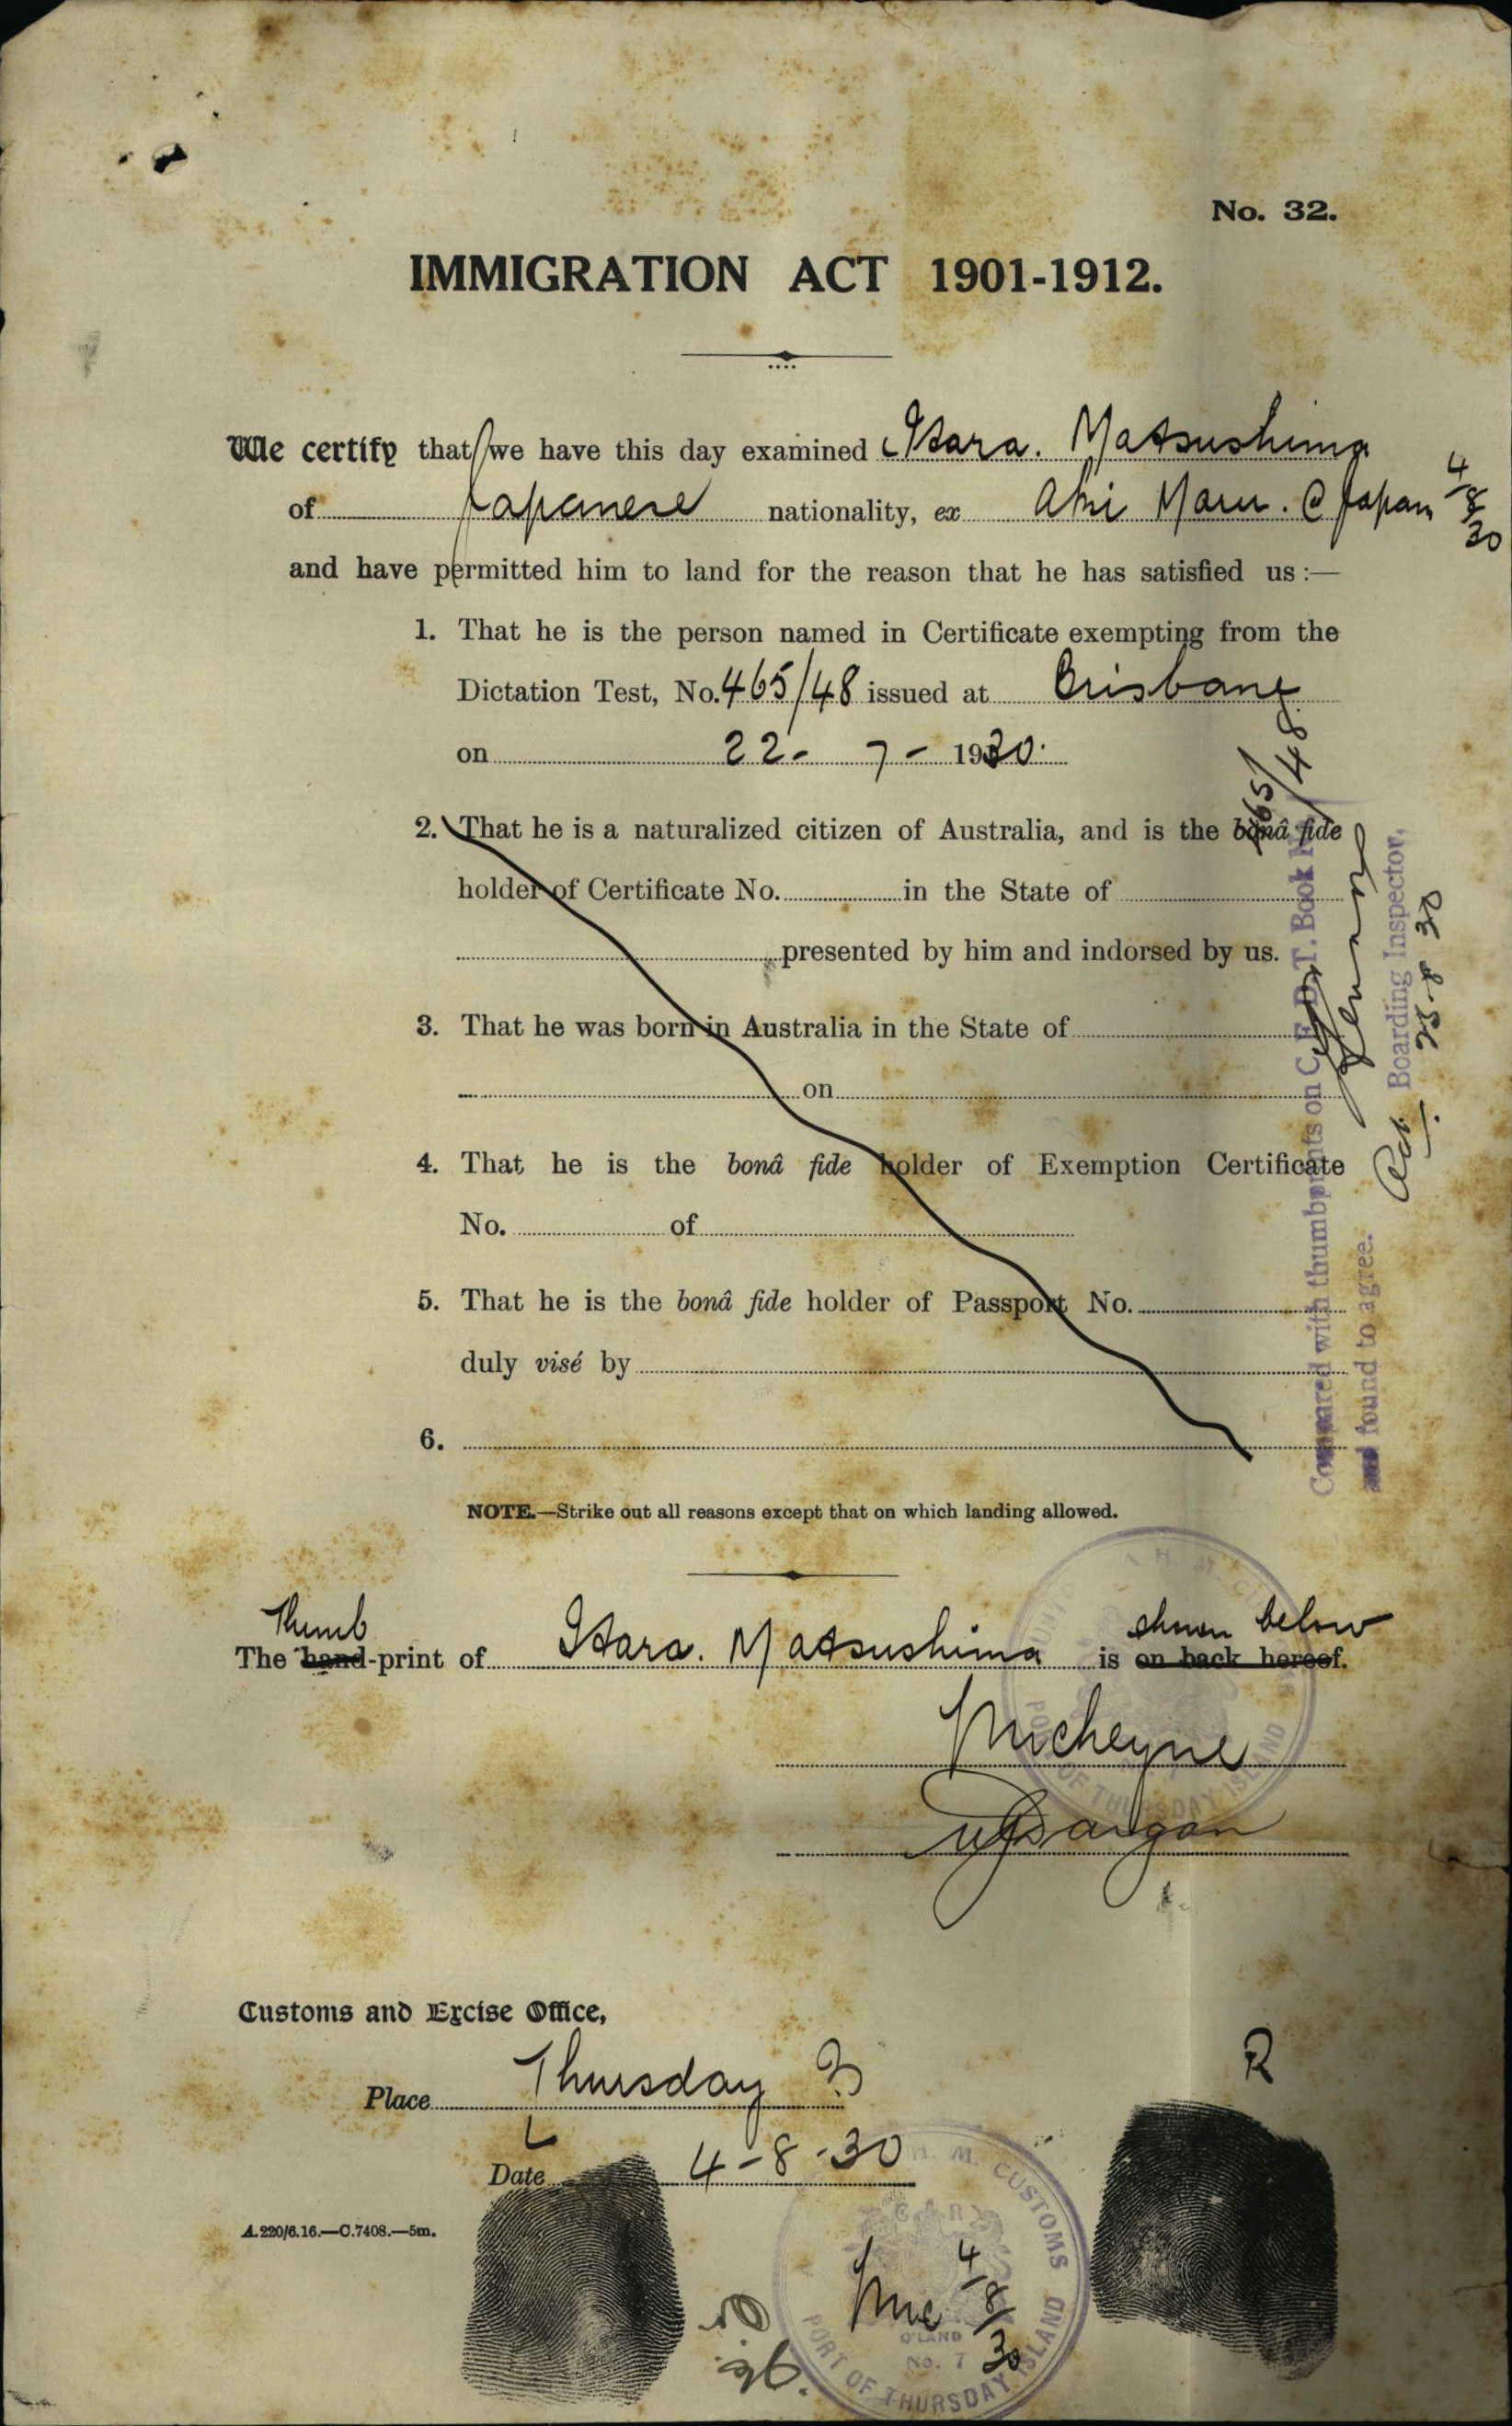 No. 32.
IMMIGRATION ACT 1901-1912.
We certify that we have this day examined Itara. Matsushima
of Japanese nationality, ex Aki Maru. @ Japan 4/8/30
and have permitted him to land for the reason that he has satisfied us :—
1. That he is the person named in Certificate exempting from the
Dictation Test, No. 465/48 issued at Brisbane
on 22- 7- 1930.
2. That he is a naturalized citizen of Australia, and is the bonâ fide
holder of Certificate No. in the State of
presented by him and indorsed by us.
3. That he was born in Australia in the State of
on
4. That he is the bonâ fide holder of Exemption Certificate
No. of
5. That he is the bonâ fide holder of Passport No.
duly visé by
6.
NOTE.—Strike out all reasons except that on which landing allowed.
Compared with thumbprints on C.E.D.T. Book No. 465/48
and found to agree.
Act. Boarding Inspector.
25-8-30
Thumb shown below
The hand-print of Itara. Matsushima is on back hereof.
Mcheyne
PORT OF THURSDAY ISLAND
Customs and Excise Office,
Place Thursday I
L
R
Date 4-8-30
A.220/6.16.—C.7408.—5m.
H. M. CUSTOMS
4/8/30
Q'LAND
No. 7
PORT OF THURSDAY ISLAND